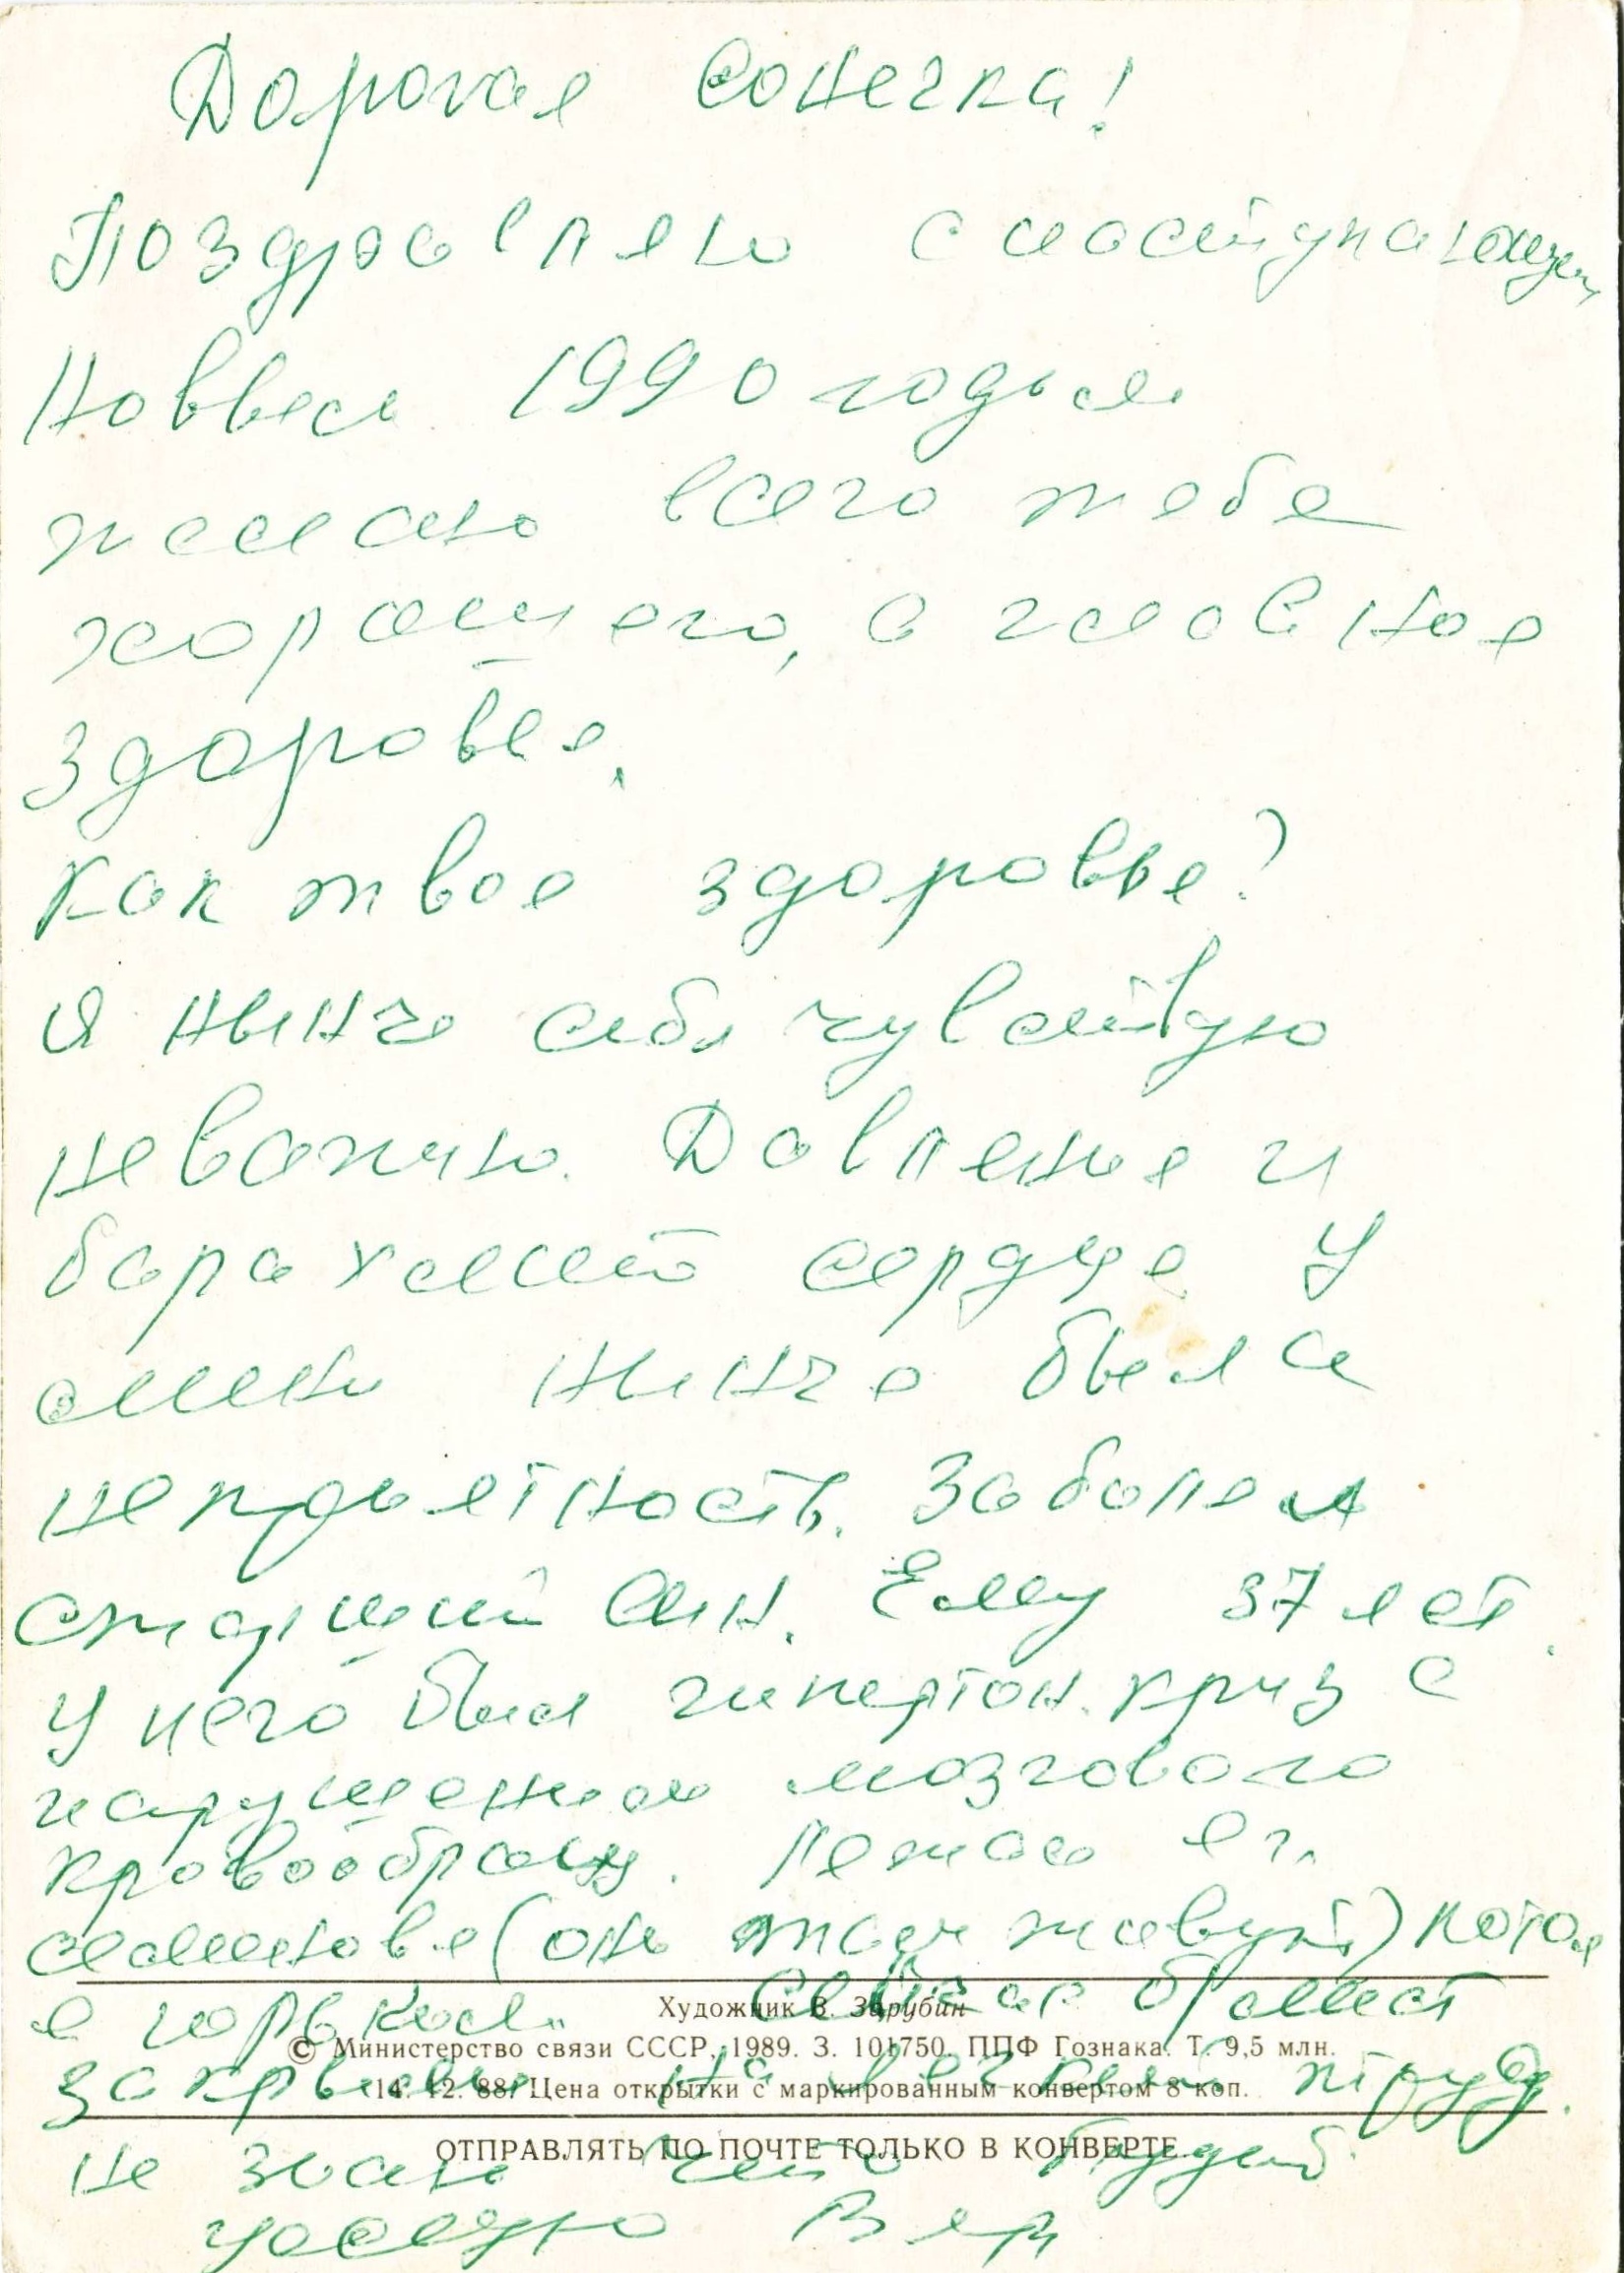 Дорогая Сонечка!
Поздравляю с наступающим
Новым 1990 годом
желаю всего тебе
хорошего, а главное
здоровье.
Как твое здоровье?
Я нынче себя чувствую
неважно. Давление и
барахлит сердце У
меня нынче была
непрыятность. Заболел
старший сын. Ему 37 лет.
У него был гипертон. криз с
нарушением мозгового
кровообращ. Лежал в г.
(они там живут)
в Горьком. Сейчас
Художник В. Зарубин
© Министерство связи СССР, 1989. З. 101750. ППФ Гознака. Т. 9,5 млн.
на легкий труд.
14. 12. 88. Цена открытки с маркированным конвертом 8 коп.
ОТПРАВЛЯТЬ ПО ПОЧТЕ ТОЛЬКО В КОНВЕРТЕ
Не знаю что будет
целую